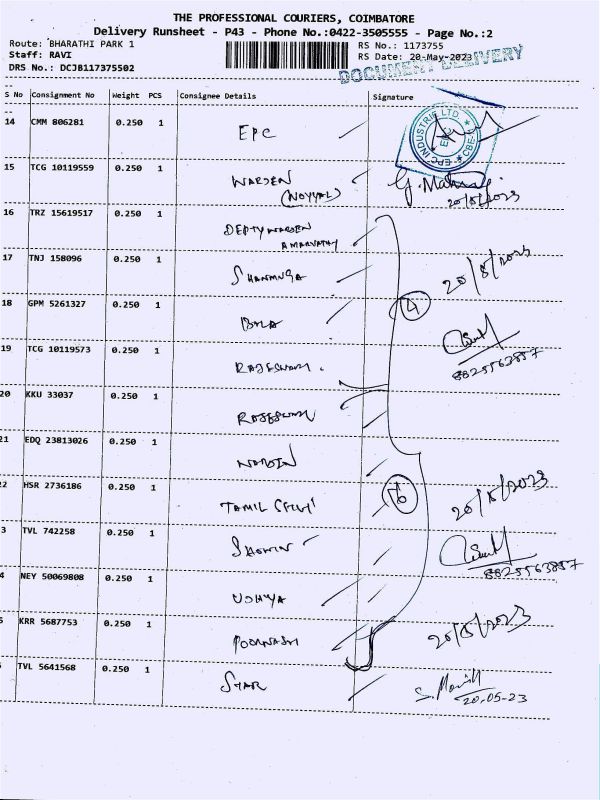 THE PROFESSIONAL COURIERS, COIMBATORE
Delivery Runsheet - P43 - Phone No.:0422-3505555 - Page No.:2
Route: BHARATHI PARK 1 RS No.: 1173755
Staff: RAVI RS Date: 20-May-2023
DRS No.: DCJB117375502
DOCUMENT DELIVERY
S No Consignment No Weight PCS Consignee Details Signature
14 CMM 806281 0.250 1 EPC
EPC INDUSTRIE LTD. CBE
15 TCG 10119559 0.250 1 WARDEN
(NOYYAL)
20/5/2023
16 TRZ 15619517 0.250 1 DEPTY WARDEN
AMARVATHY
17 TNJ 158096 0.250 1 SHANMUGA
20/5/2023
18 GPM 5261327 0.250 1 BALA
4
19 TCG 10119573 0.250 1
8825563857
20 KKU 33037 0.250 1
21 EDQ 23813026 0.250 1 WARDEN
22 HSR 2736186 0.250 1 TAMIL SELVI
6 20/5/2023
3 TVL 742258 0.250 1
8825563857
4 NEY 50069808 0.250 1
5 KRR 5687753 0.250 1
20/5/2023
TVL 5641568 0.250 1 STAR
20-05-23